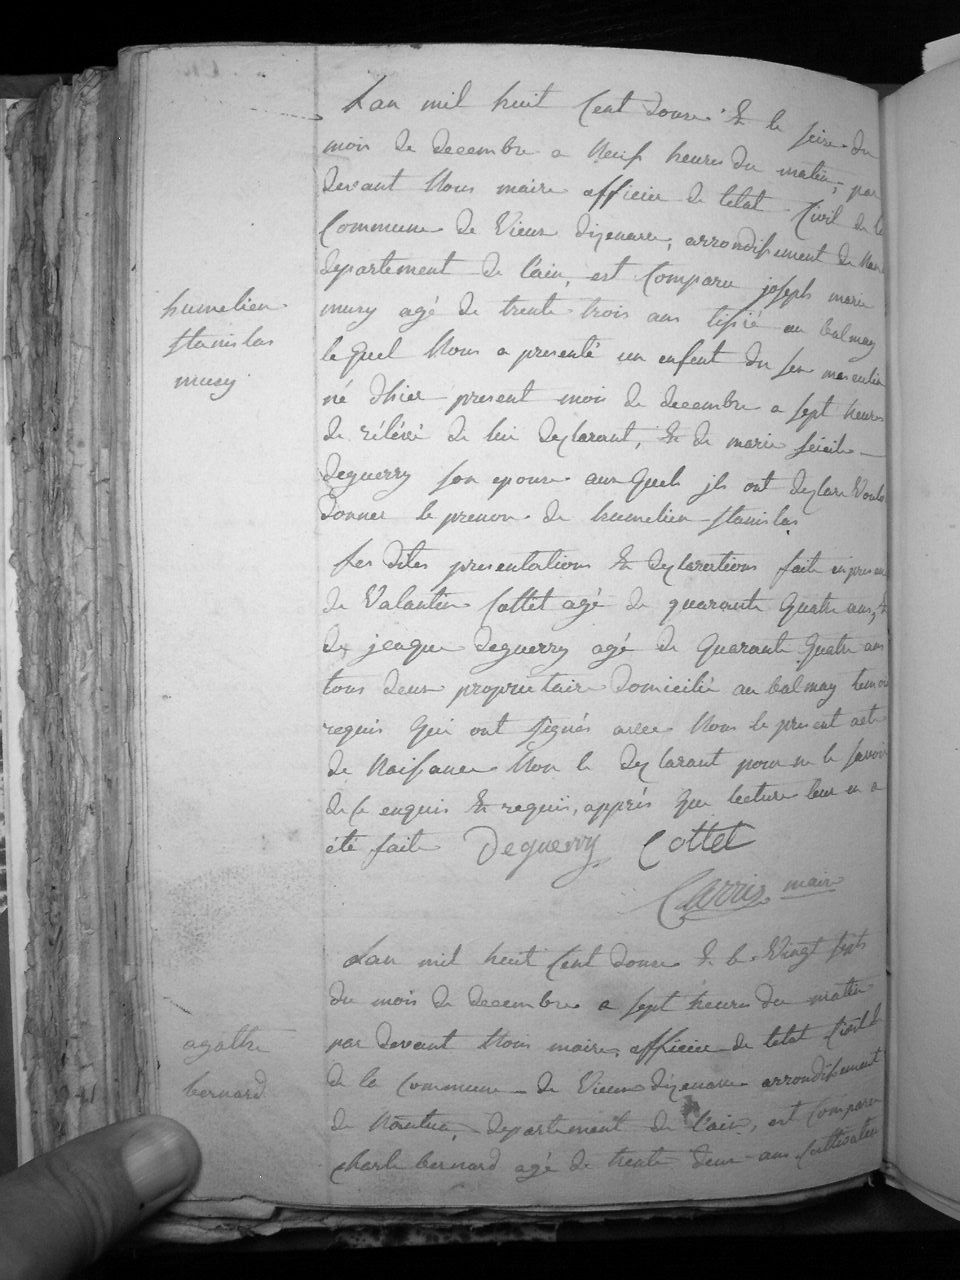 Lan mil huit Cent douze & le seize du
mois de decembre a Neuf heures du matin, par
devant Nous maire afficier de letat Civil de la
Commune de Vieux dizenave, arrondissement de Nan
departement de l'ain, est Comparu joseph marie
humelien
mury agé de trente trois ans tissié au balmay
stanislas
lequel Nous a presenté un enfent du sex masculin
mury
né dhier present mois de decembre a sept heures
de rélévé de lui declarant, & de marie séicile
deguerry son epouse auxquels jls ont declare Voulo
donner le prenom de humelien stanislas
Les dites presentations & declarations faite en presen
de Valantin Cottet agé de quarante quatre ans, &
de jeaque deguerry agé de quarante quatre ans
tous deux proprietaire domicilié au balmay temoi
requis qui ont signés avec Nous le present acte
de Naissance Non le declarant pour ne le savoir
de ce enquis & requis, apprés que lecture leur en a
été faite Deguerry Cottet
Carris maire
Lan mil huit Cent douze & le Vingt sept
du mois de decembre a sept heures du matin
agathe
par devant Nous maire, afficier de letat Civil
bernard
de la Commune de Vieux dizenave arrondissement
de Nantua, departement de l'ain, est Comparu
charle bernard agé de trente deux ans Cultivateur